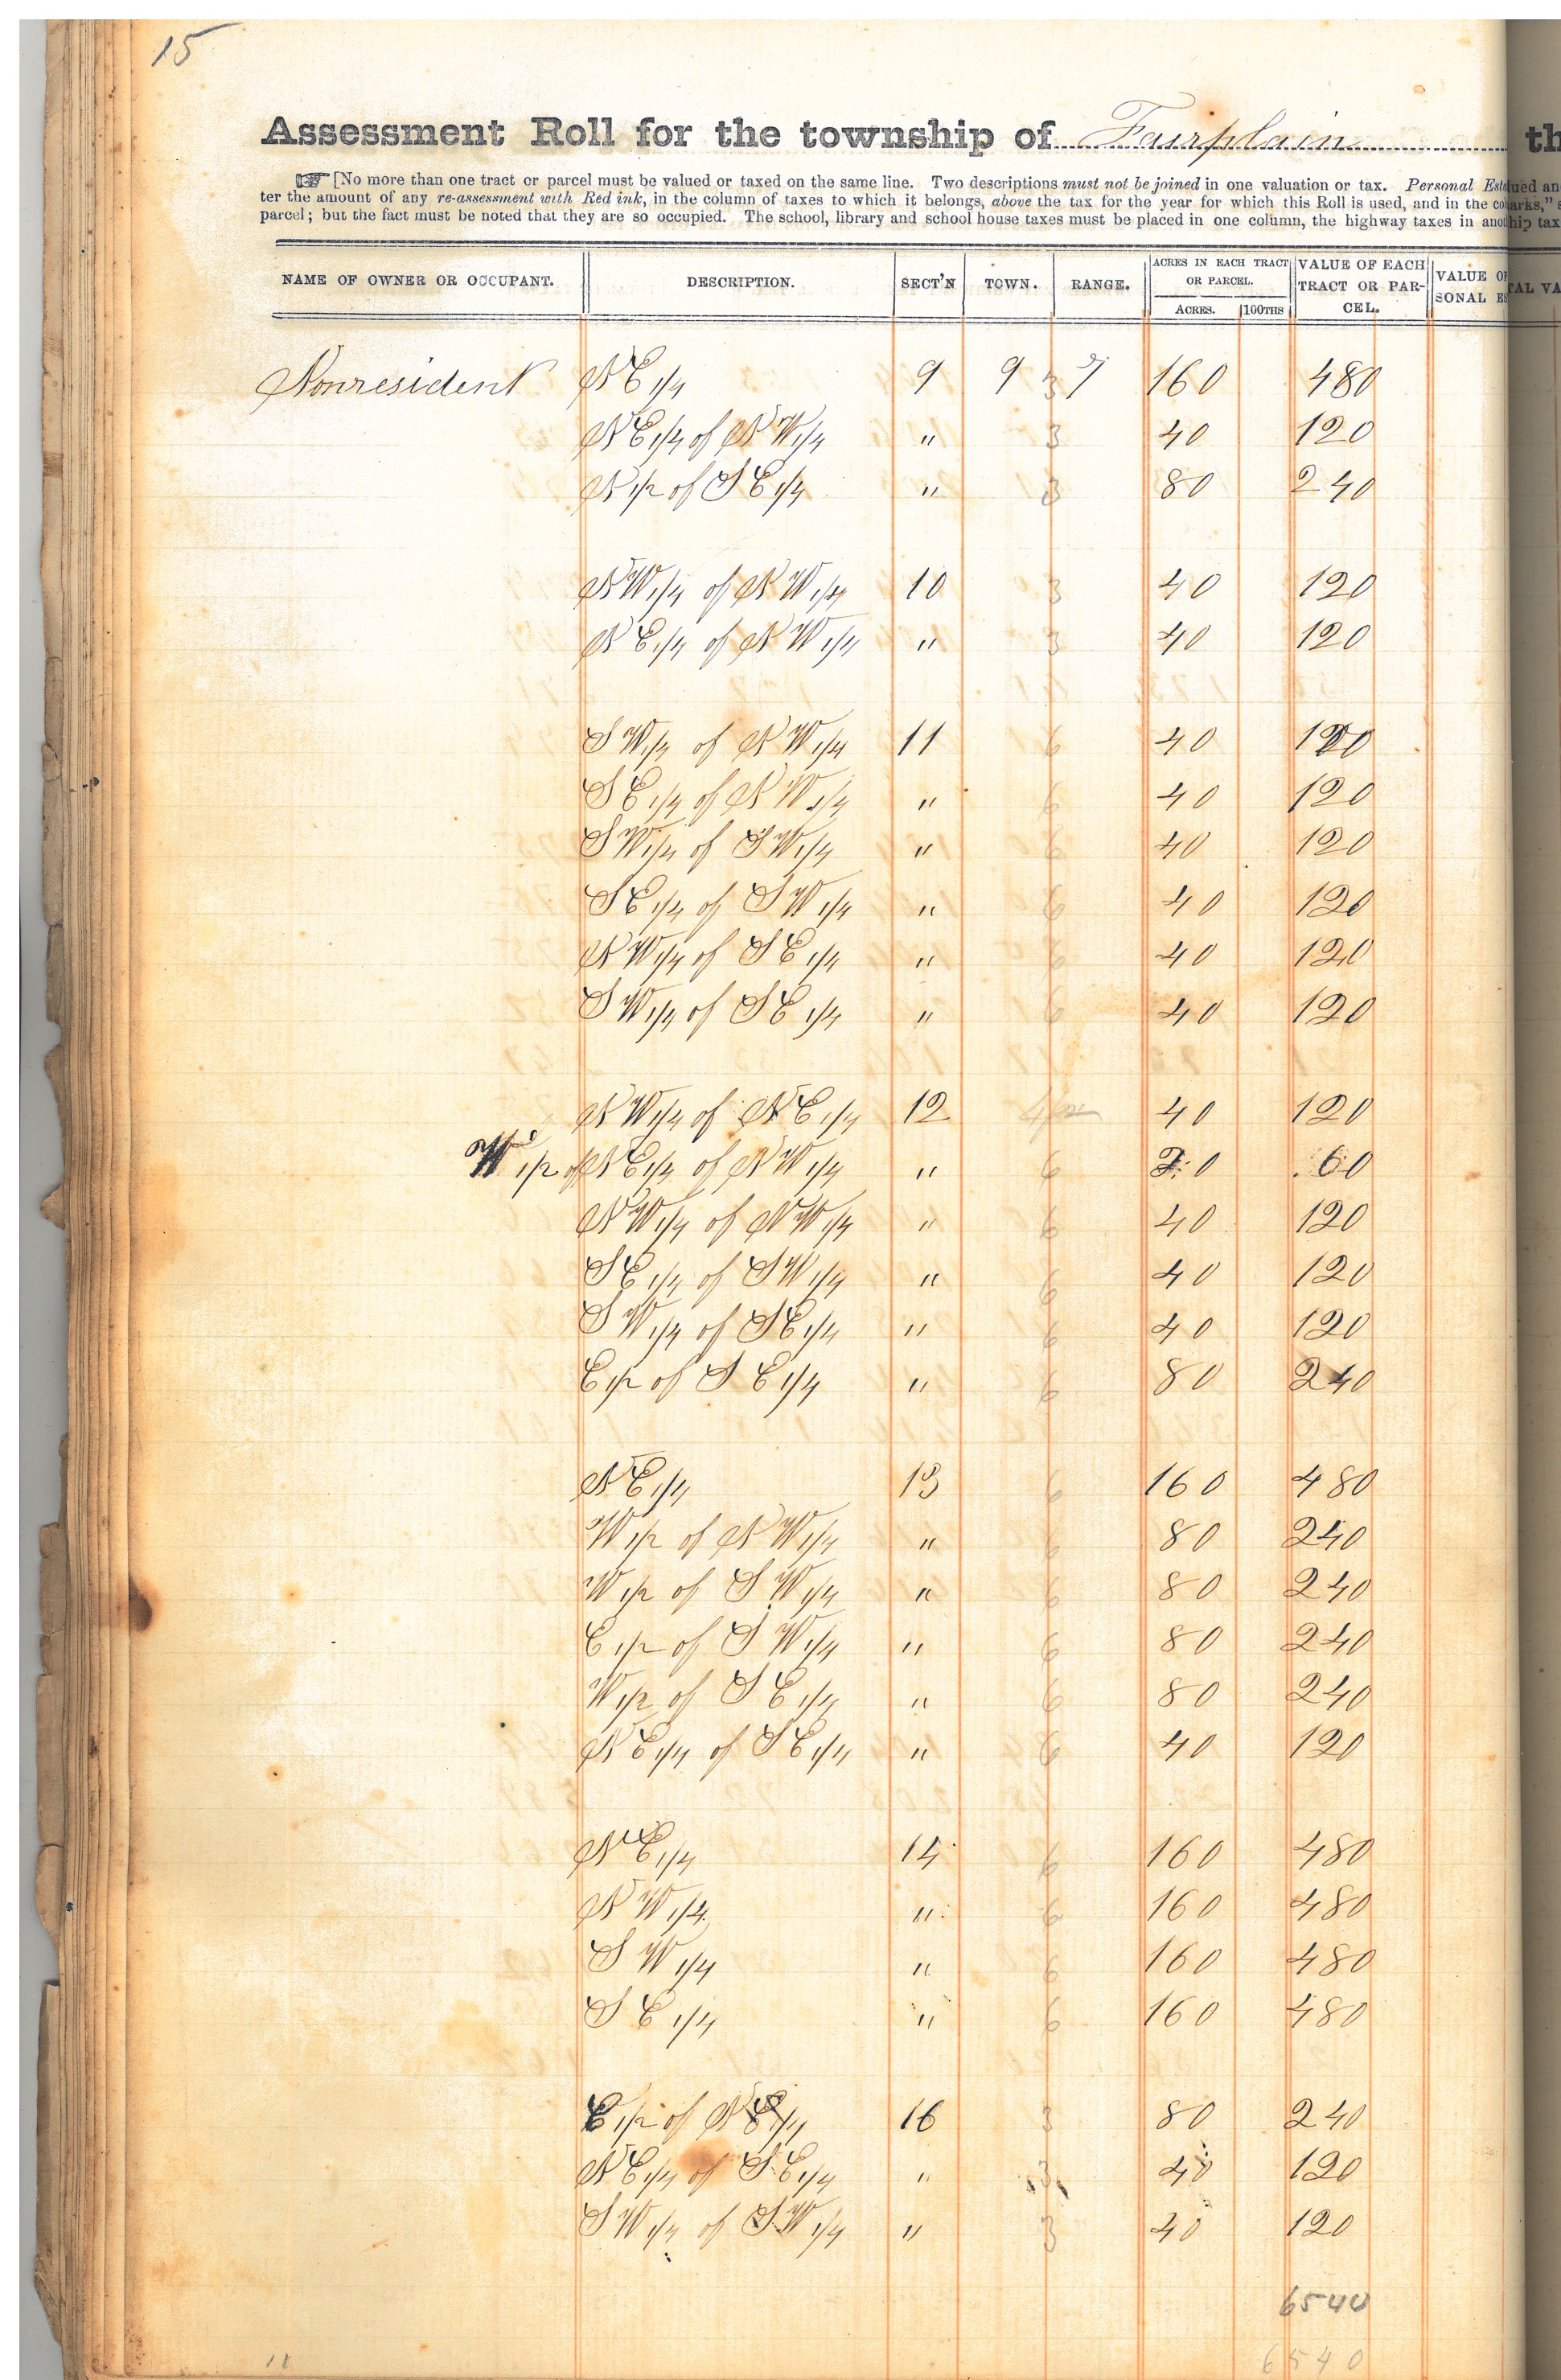 15
Assessment Roll for the township of Fairplain th
[No more than one tract or parcel must be valued or taxed on the same line. Two descriptions must not be joined in one valuation or tax. Personal Est lued an
ter the amount of any re-assessment with Red ink, in the column of taxes to which it belongs, above the tax for the year for which this Roll is used, and in the co arks," s
parcel; but the fact must be noted that they are so occupied. The school, library and school house taxes must be placed in one column, the highway taxes in anot hip tax
NAME OF OWNER OR OCCUPANT. DESCRIPTION. SECT'N TOWN. RANGE. ACRES IN EACH TRACT OR PARCEL. ACRES. 100THS VALUE OF EACH TRACT OR PARCEL. VALUE O SONAL ES TAL VA
Nonresident N E 1/4 9 9 3 7 160 480
N E 1/4 of N W 1/4 " 3 40 120
N 1/2 of S E 1/4 " 3 80 240
N W 1/4 of N W 1/4 10 3 40 120
N E 1/4 of N W 1/4 " 3 40 120
S W 1/4 of N W 1/4 11 6 40 120
S E 1/4 of N W 1/4 " 6 40 120
S W 1/4 of S W 1/4 " 6 40 120
S E 1/4 of S W 1/4 " 6 40 120
N W 1/4 of S E 1/4 " 6 40 120
S W 1/4 of S E 1/4 " 6 40 120
N W 1/4 of N E 1/4 12 40 120
W 1/2 of N E 1/4 of N W 1/4 " 6 20 60
N W 1/4 of N W 1/4 " 6 40 120
S E 1/4 of S W 1/4 " 6 40 120
S W 1/4 of S E 1/4 " 6 40 120
E 1/2 of S E 1/4 " 6 80 240
N E 1/4 13 6 160 480
W 1/2 of N W 1/4 " 6 80 240
W 1/2 of S W 1/4 " 6 80 240
E 1/2 of S W 1/4 " 6 80 240
W 1/2 of S E 1/4 " 6 80 240
N E 1/4 of S E 1/4 " 6 40 120
N E 1/4 14 6 160 480
N W 1/4 " 6 160 480
S W 1/4 " 6 160 480
S E 1/4 " 6 160 480
E 1/2 of N E 1/4 16 3 80 240
N E 1/4 of S E 1/4 " 3 40 120
S W 1/4 of S W 1/4 " 3 40 120
6540
6540